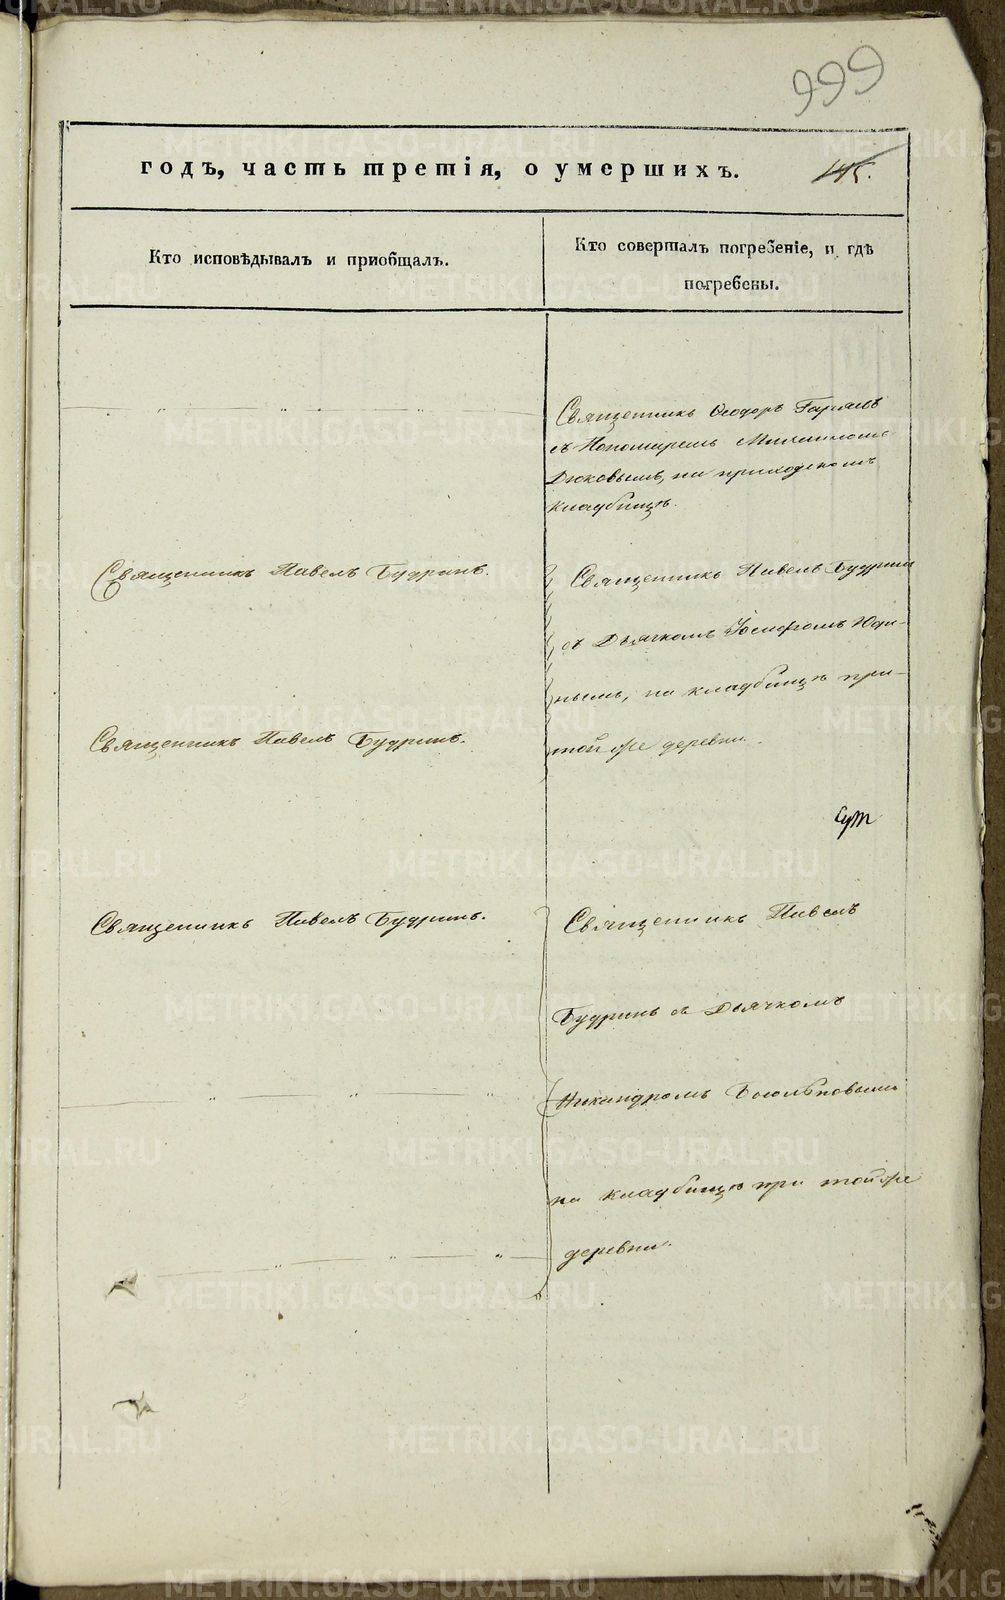 999
годъ, часть третія, о умершихъ.
145.
Кто исповѣдывалъ и пріобщалъ.
Кто совершалъ погребеніе, и гдѣ
погребены.
Священникъ Ѳеодоръ
съ Пономаремъ
Дюковымъ, на приходскомъ
кладбищѣ.
Священникъ Павелъ Будринъ.
Священникъ Павелъ Будринъ
съ Дьячкомъ Іосифомъ Юди-
нымъ, на кладбищѣ при
Священникъ Павелъ Будринъ.
той же деревни.
Священникъ Павелъ Будринъ.
Священникъ Павелъ
Будринъ съ Дьячкомъ
Никандромъ
на кладбищѣ при той же
деревни.
METRIKI.GASO-URAL.RU